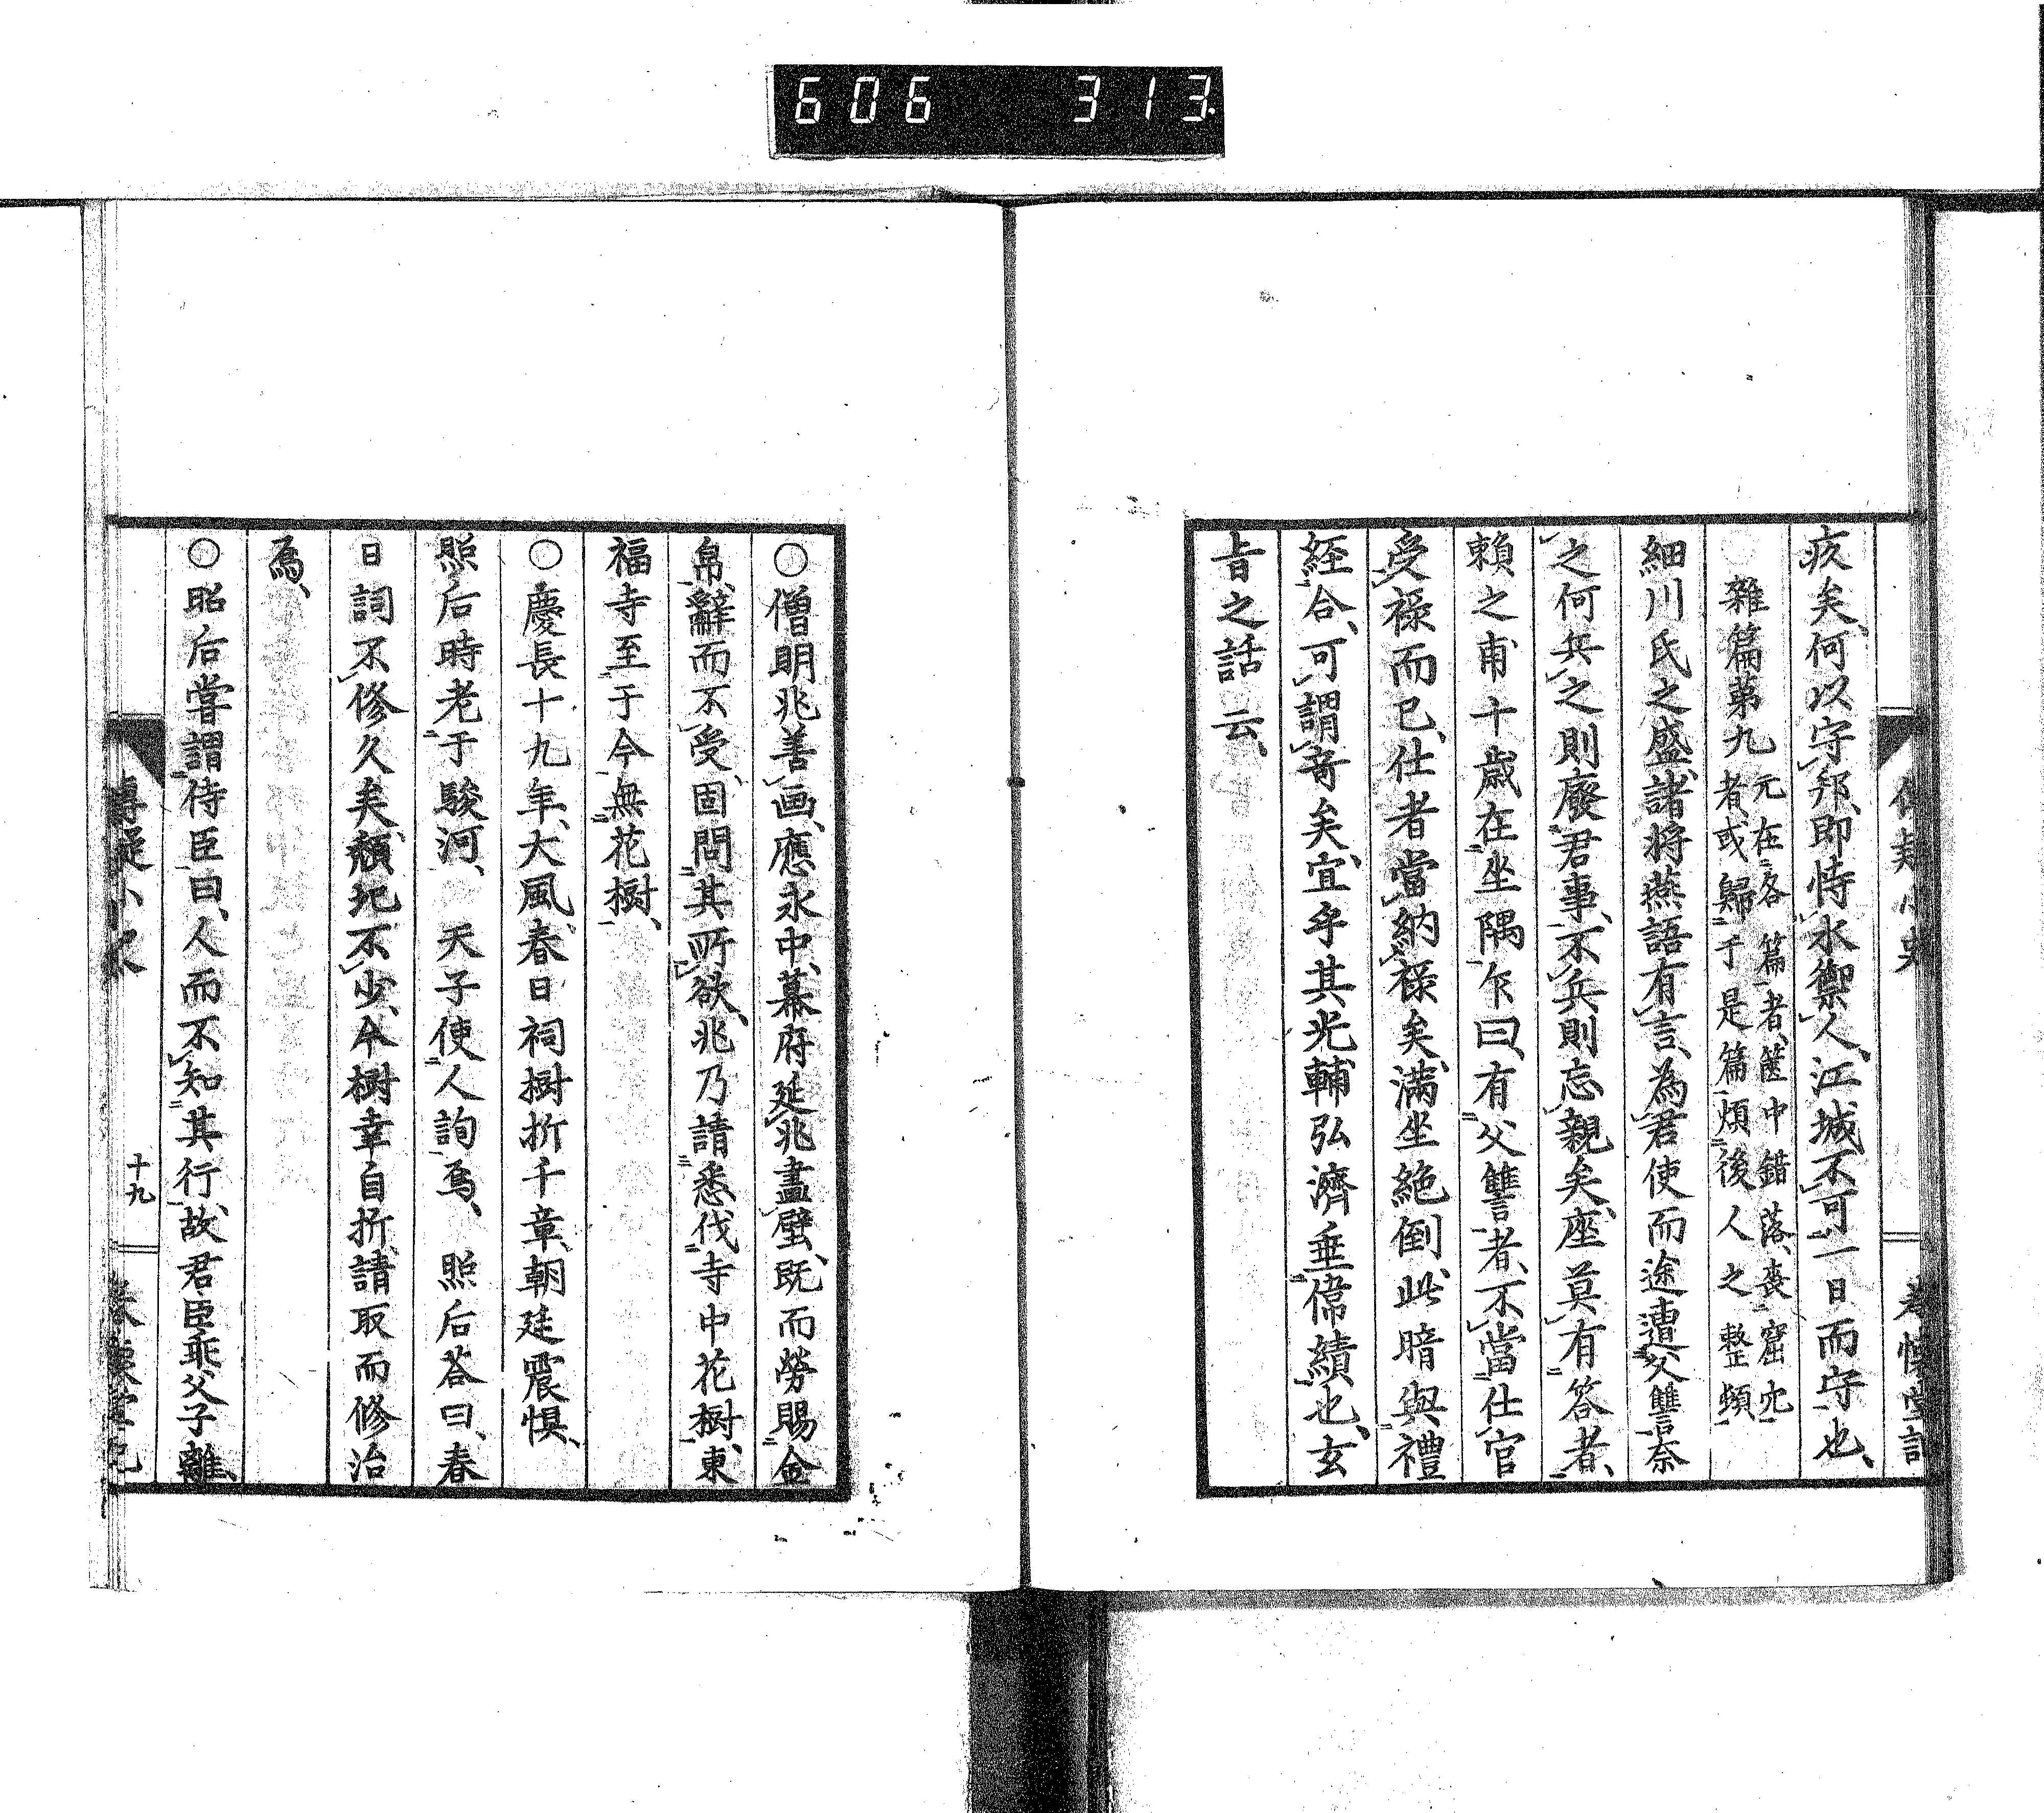 606 313
疢矣、何以守邦、即恃水禦人、江城不可一日而守也、
雜篇第九
元在各篇者、篋中錯落、喪窟宂
者、或歸于是篇、煩後人之整頓
細川氏之盛、諸將燕語有言、為君使而途遭父讐奈
之何、兵之則廢君事、不兵則忘親矣、座莫有答者、
賴之甫十歲在坐隅、乍曰、有父讐者、不當仕官
受祿而已、仕者當納祿矣、滿坐絶倒、此暗與禮
經合、可謂竒矣、宜乎其光輔弘濟垂偉績也、玄
旨之話云、
○僧明兆善画、應永中、幕府延兆畵壁、既而勞賜金
帛、辭而不受、固問其所欲、兆乃請悉伐寺中花樹、東
福寺至于今無花樹、
○慶長十九年、大風、春日祠樹折千章、朝廷震惧、
照后時老于駿河、 天子使人詢焉、 照后荅曰、春
日詞不修久矣、頽圯不少、今樹幸自折、請取而修治
焉、
○昭后嘗謂侍臣曰、人而不知其行、故君臣乖、父子離、
十九